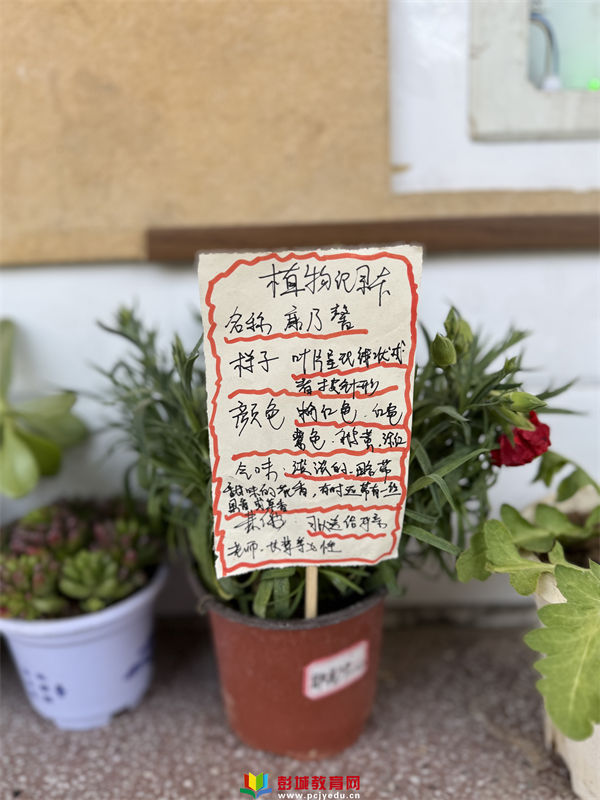 植物记录卡
名称 康乃馨
样子 叶片呈现线状或
者披针形
颜色 粉红色、红色
紫色、鹅黄、深红
气味、淡淡的、略带
甜味的花香，有时还带有一丝
其他 可以送给母亲
老师、女尊等女性
彭城教育网
www.pcjyedu.cn